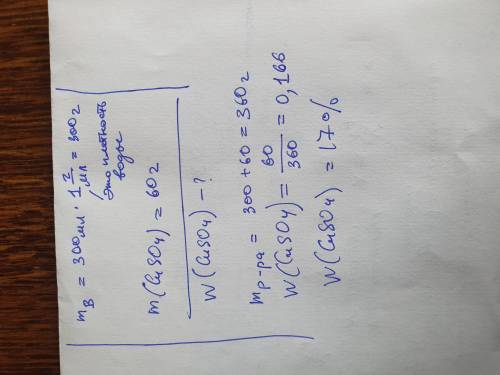 mв = 300 мл · 1 г/мл = 300 г
Это плотность
воды
m(CuSO4) = 60 г
W(CuSO4) - ?
mр-ра = 300 + 60 = 360 г
W(CuSO4) = 60/360 = 0,166
W(CuSO4) = 17%